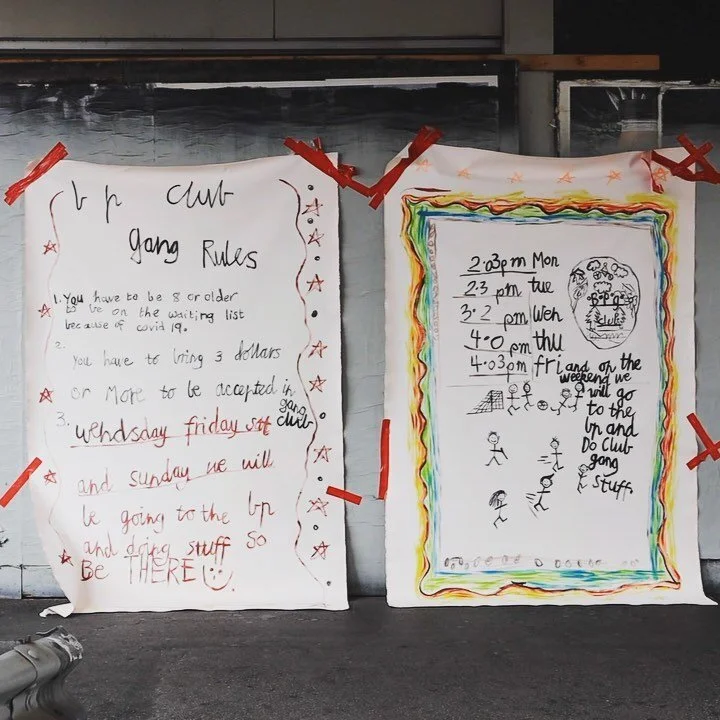 bp club
gang Rules
1. You have to be 8 or older
to be on the waiting list
because of covid 19.
2.
You have to bring 3 dollars
or More to be accepted in
gang
club
3. wehdsday friday sat
and sunday we will
be going to the bp
and doing stuff so
Be THERE
2.03pm Mon
2.3 pm tue
3.2 pm Weh
4.0 pm thu
4.03pm fri and on the
weekend we
will go
to the
bp and
Do Club
gang
stuff.
B.P.g
club